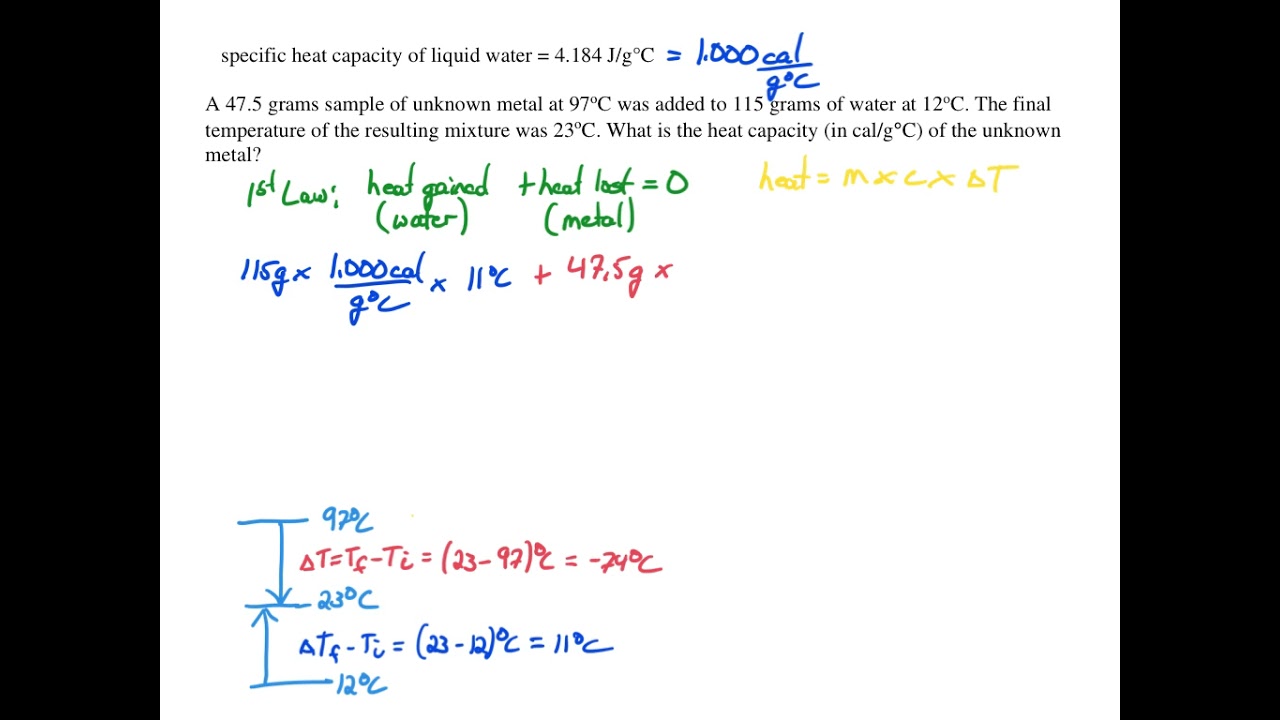 specific heat capacity of liquid water = 4.184 J/g°C = 1.000 cal/g°C
A 47.5 grams sample of unknown metal at 97°C was added to 115 grams of water at 12°C. The final
temperature of the resulting mixture was 23°C. What is the heat capacity (in cal/g°C) of the unknown
metal?
1st Law: heat gained + heat lost = 0 heat = m x c x ΔT
(water) (metal)
115g x 1.000 cal/g°C x 11°C + 47.5g x
97°C
ΔT=Tf-Ti = (23-97)°C = -74°C
23°C
ΔTf-Ti = (23-12)°C = 11°C
12°C